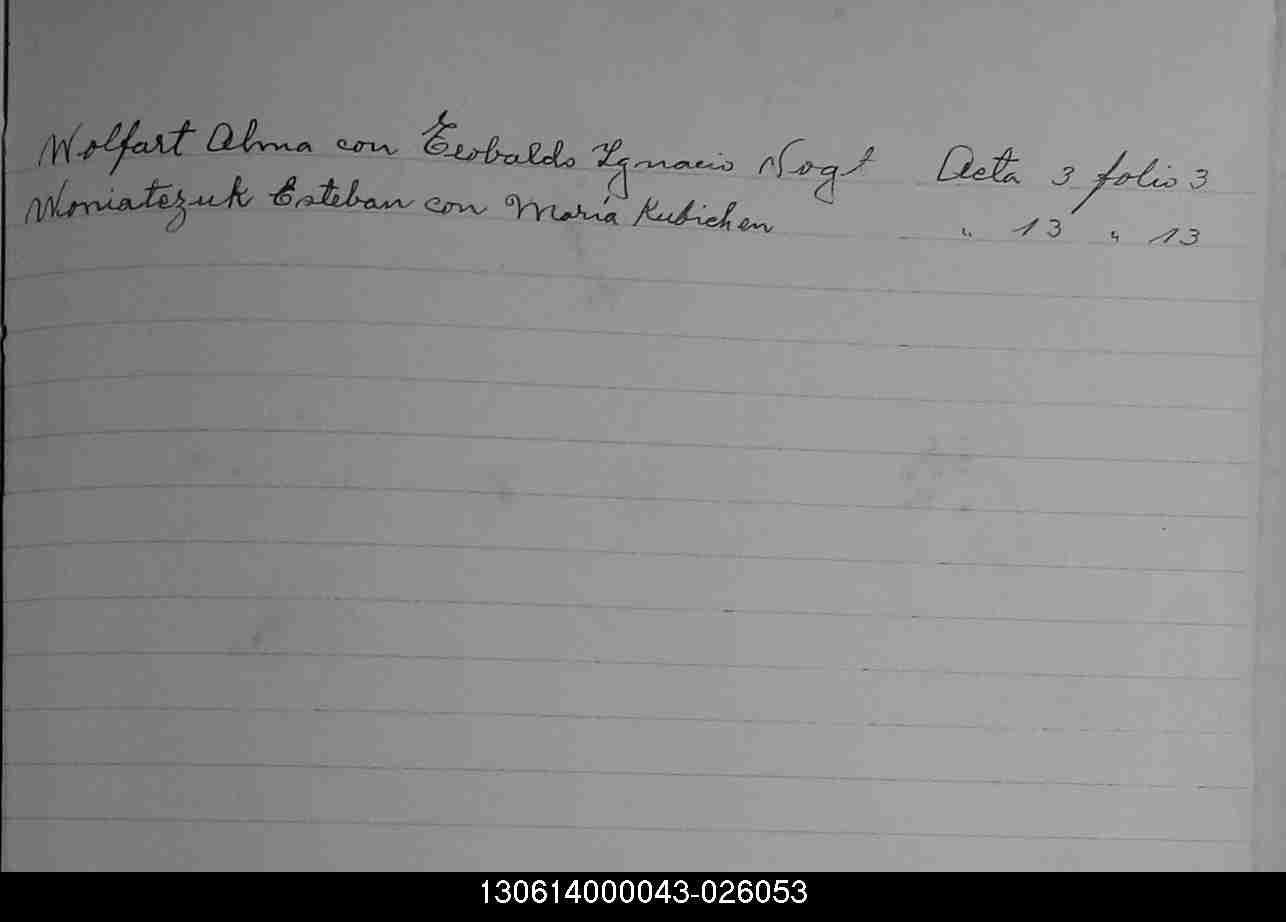 Wolfart Alma con Teobaldo Ygnacio Vogt Acta 3 folio 3
Woniatezuk Esteban con María Kubichen " 13 " 13
130614000043-026053